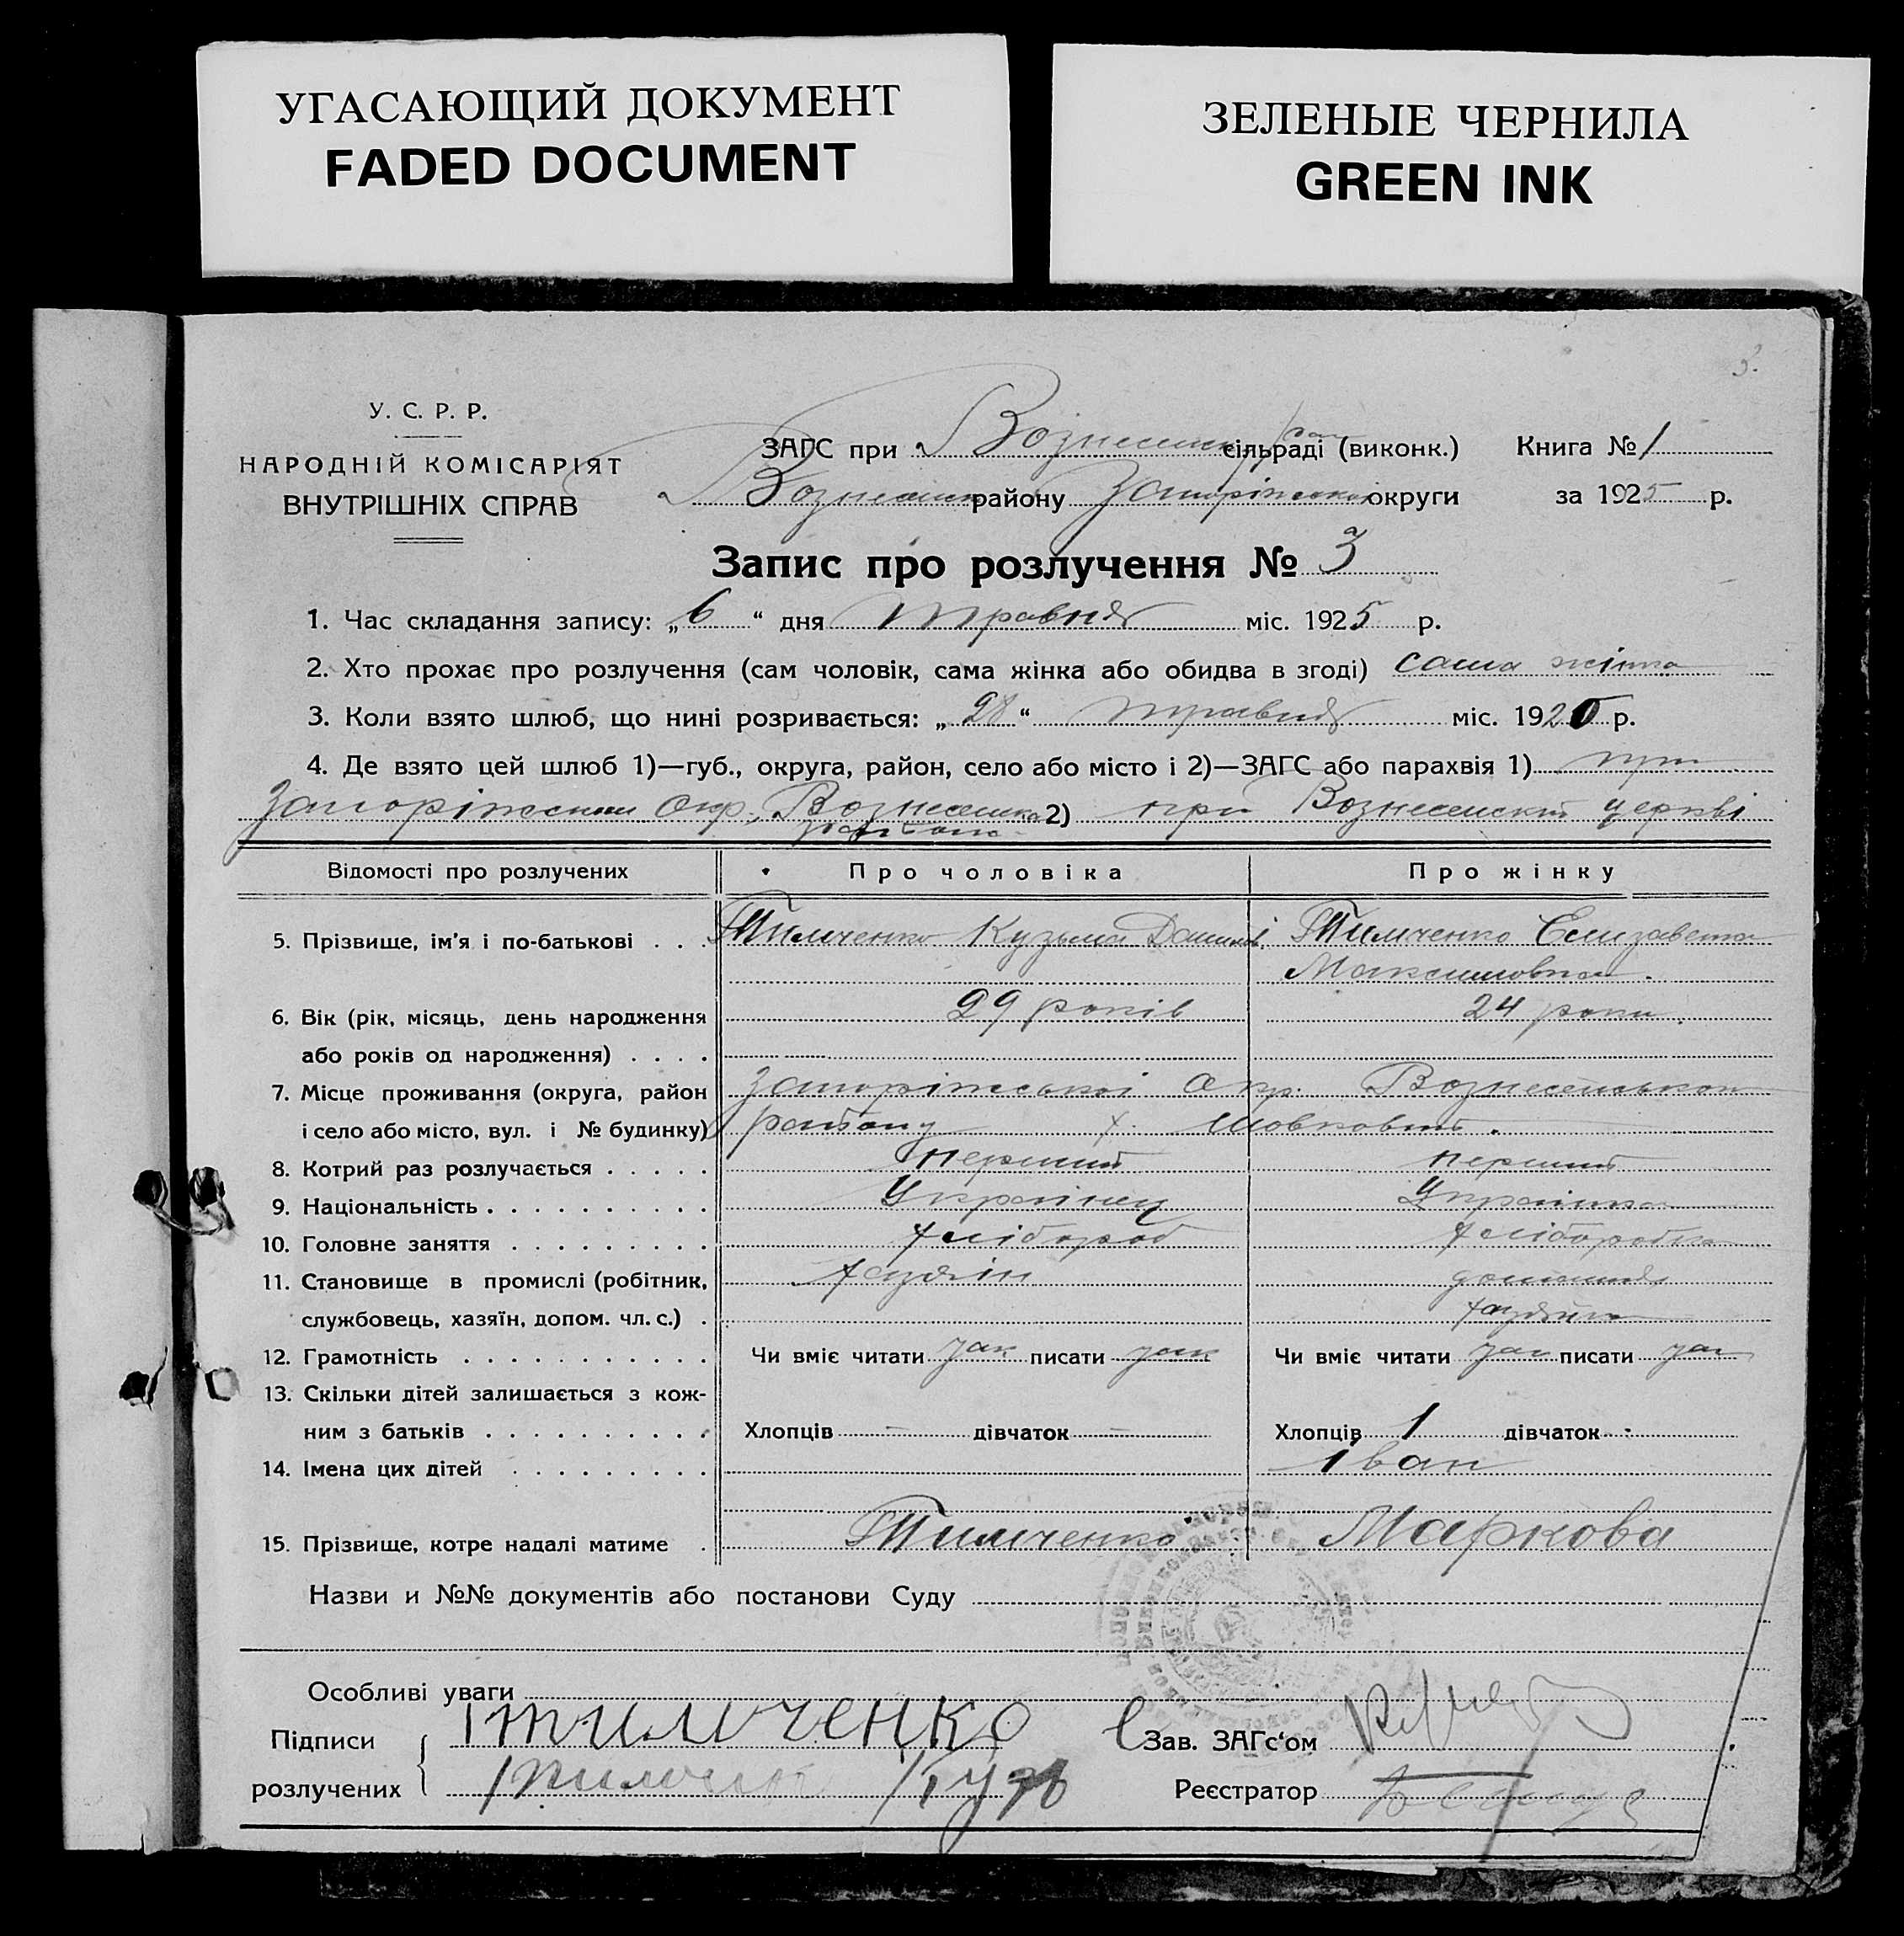 УГАСАЮЩИЙ ДОКУМЕНТ
FADED DOCUMENT
ЗЕЛЕНЫЕ ЧЕРНИЛА
GREEN INK
3.
У. С. Р. Р.
НАРОДНІЙ КОМІСАРІЯТ
ВНУТРІШНІХ СПРАВ
ЗАГС при Вознесенск рай сільраді (виконк.) Книга № 1
Вознесенск району Запоріжської округи за 1925 р.
Запис про розлучення № 3
1. Час складання запису: „6“ дня травня міс. 1925 р.
2. Хто прохає про розлучення (сам чоловік, сама жінка або обидва в згоді) сама жінка
3. Коли взято шлюб, що нині розривається: „28“ травня міс. 1920 р.
4. Де взято цей шлюб 1)—губ., округа, район, село або місто і 2)—ЗАГС або парахвія 1)
Запоріжської Окр., Вознесенск 2) при Вознесенскій церкві
Відомості про розлучених Про чоловіка Про жінку
5. Прізвище, ім’я і по-батькові . . . Тимченко Кузьма Данилов. Тимченко Елизавета
Максимовна.
6. Вік (рік, місяць, день народження 29 років 24 роки.
або років од народження) . . . .
7. Місце проживання (округа, район Запоріжської Окр. Вознесенського
і село або місто, вул. і № будинку) району х.
8. Котрий раз розлучається . . . . . перший перший
9. Національність . . . . . . . . . . Українец Українка
10. Головне заняття . . . . . . . . . хлібороб хліборобка
11. Становище в промислі (робітник, хазяїн домашня
службовець, хазяїн, допом. чл. с.) . хазяйка
12. Грамотність . . . . . . . . . . . Чи вміє читати так писати так Чи вміє читати так писати так
13. Скільки дітей залишається з кож-
ним з батьків . . . . . . . . . . Хлопців — дівчаток — Хлопців 1 дівчаток -
14. Імена цих дітей . . . . . . . . . Іван
15. Прізвище, котре надалі матиме . Тимченко Маркова
Назви и №№ документів або постанови Суду
Особливі уваги
Підписи Тимченко Е Зав. ЗАГс‘ом
розлучених Тимченко Кузь Реєстратор